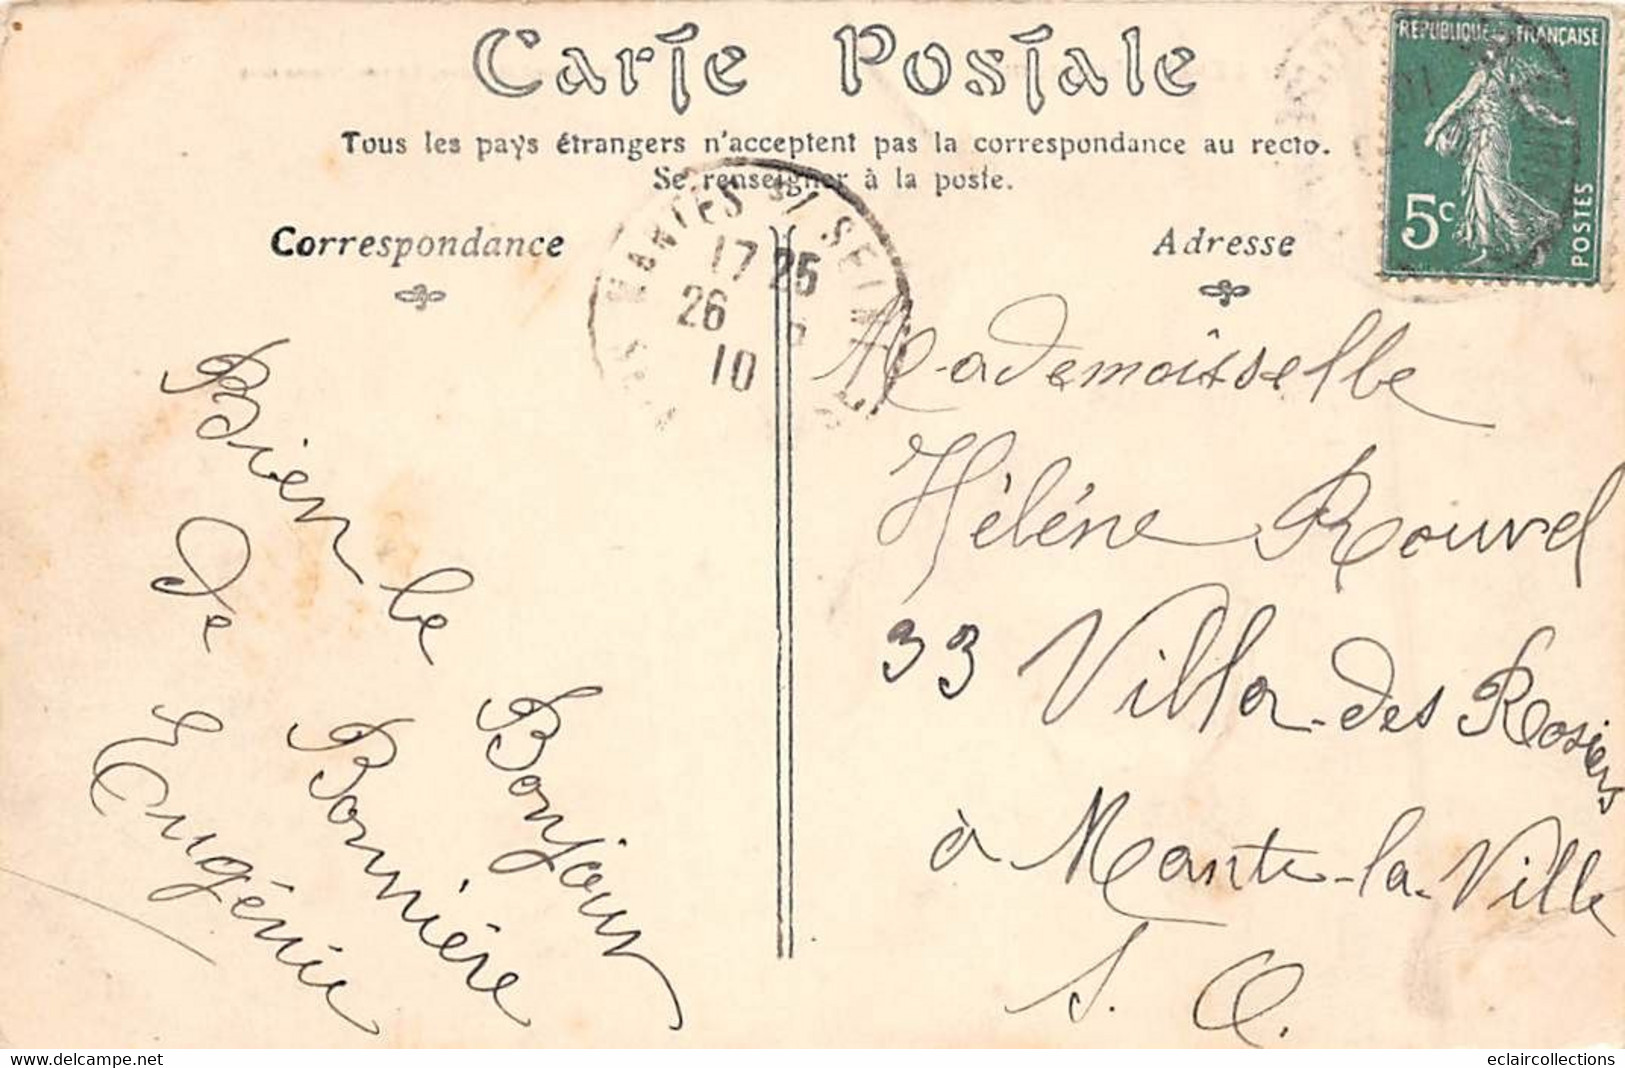 Carte Postale
Tous les pays étrangers n'acceptent pas la correspondance au recto.
Se renseigner à la poste.
Correspondance
Adresse
REPUBLIQUE FRANÇAISE
5c
POSTES
MANTES S1 SEINE
17 25
26
10
Bien le Bonjour
de Bonnière
Eugénie
Mademoisselle
Héléne Rouvel
33 Villa-des Rosiers
à Mante-la-Ville
S. O.
eclaircollections